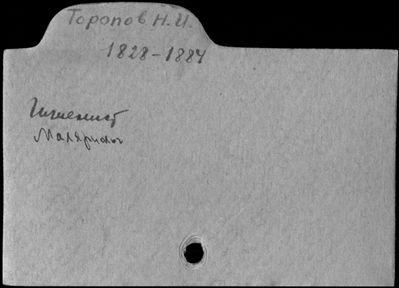 Торопов Н.И.
1828-1884
Гигиенист
Маляриолог